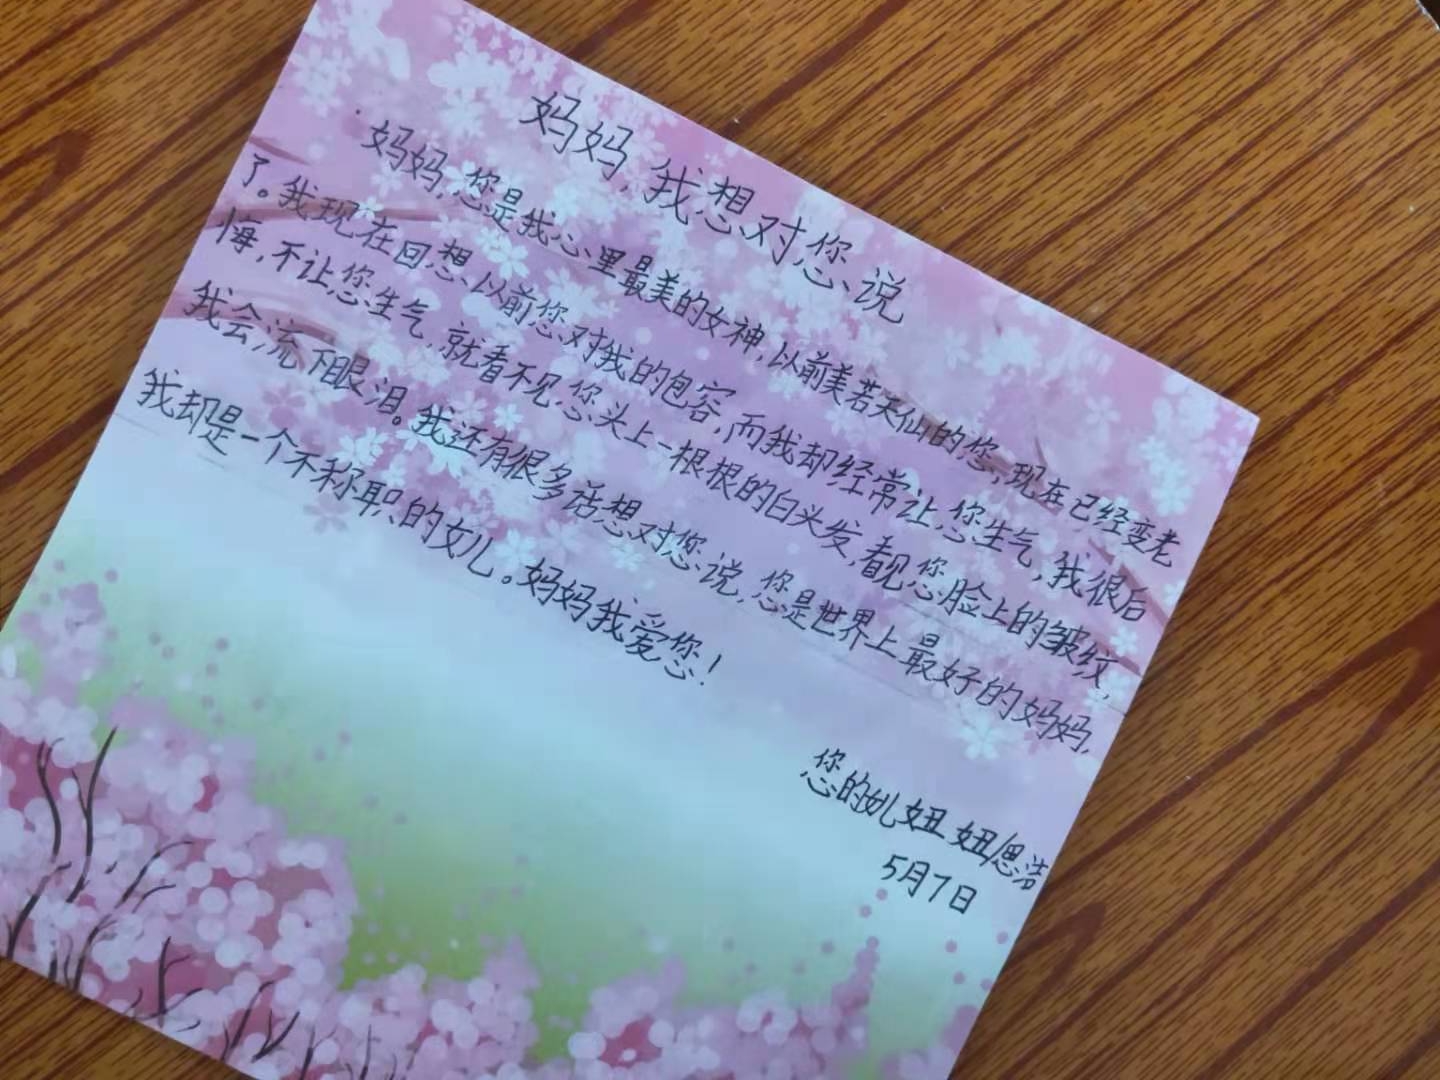 妈妈,我想对您说
妈妈,您是我心里最美的女神,以前美若天仙的您,现在已经变老
了。我现在回想以前您对我的包容,而我却经常让您生气,我很后
悔,不让您生气,就看不见您头上一根根的白头发,看见您脸上的皱纹,
我会流下眼泪。我还有很多话想对您说,您是世界上最好的妈妈,
我却是一个不称职的女儿。妈妈我爱您!
您的 妞妞/思浩
5月7日